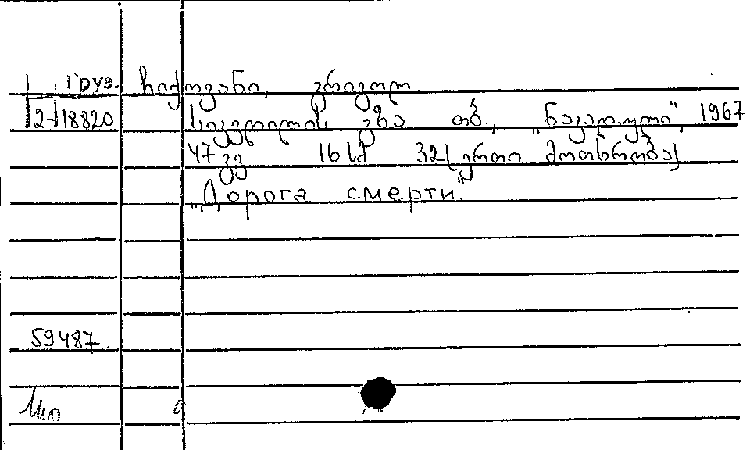 Груз. ჩიქოვანი, გრიგოლ
2-18820 სიკვდილის გზა თბ., „ნაკადული", 1967
47 გვ 16 სმ 32 (ერთი მოთხრობა)
„Дорога смерти"
59487